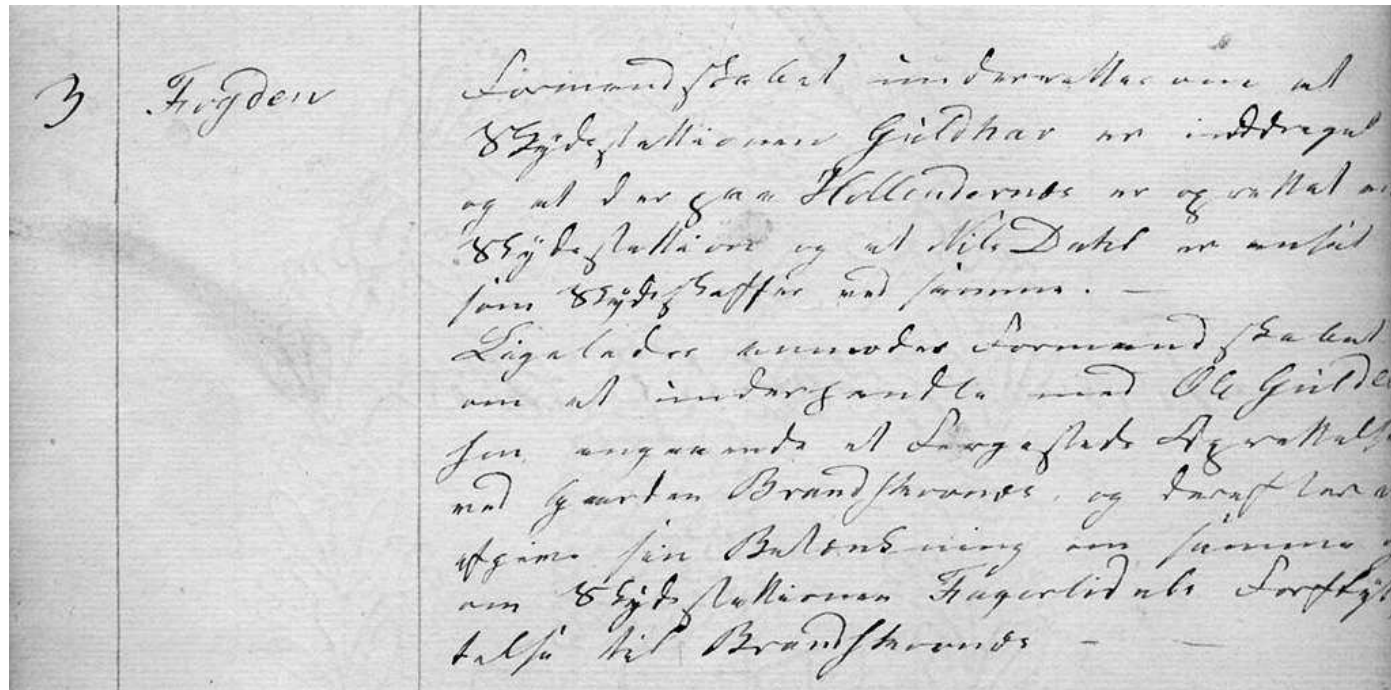 3 Fogden Formandskabet underrettes om at
Skydsstattionen Guldhav er inddraget
og at der paa Hollendernæs er oprettet
Skydsstattion og at Nils Dahl er ansat
som Skydsskaffer ved samme. —
Ligeledes anmodes Formandskabet
om at underhandle med Ole
angaaende et Færgesteds Oprettelse
ved Gaarden Brandskronæs, og derefter
afgive sin Betænkning om samme
om Skydsstattionen Fagerlidals Forflyt
telse til Brandskronæs — —